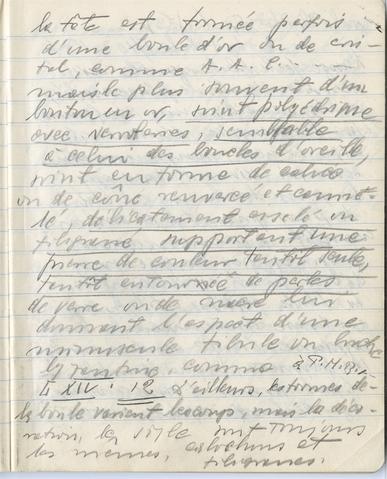 la tête est formée parfois
d'une boule d'or ou de cris-
tal, comme A. A. C. ....
mais le plus souvent d'un
bouton en or, soint polyédrique
avec verroteries, semblable
à celui des boucles d'oreille,
soint en forme de cabos
ou de cône renversé et
té, délicatement ciselé ou
filigrane supportant une
pierre de couleur tantôt seule,
tantôt entourée de perles
de verre ou de nacre lui
donnant l'aspect d'une
minuscule fibule ou
byzantine, comme à P. M.
I XIV : 12 D'ailleurs, les formes de
la boule varient beaucoup, mais la déco-
ration, le style sont toujours
les mêmes, et
filigranes.